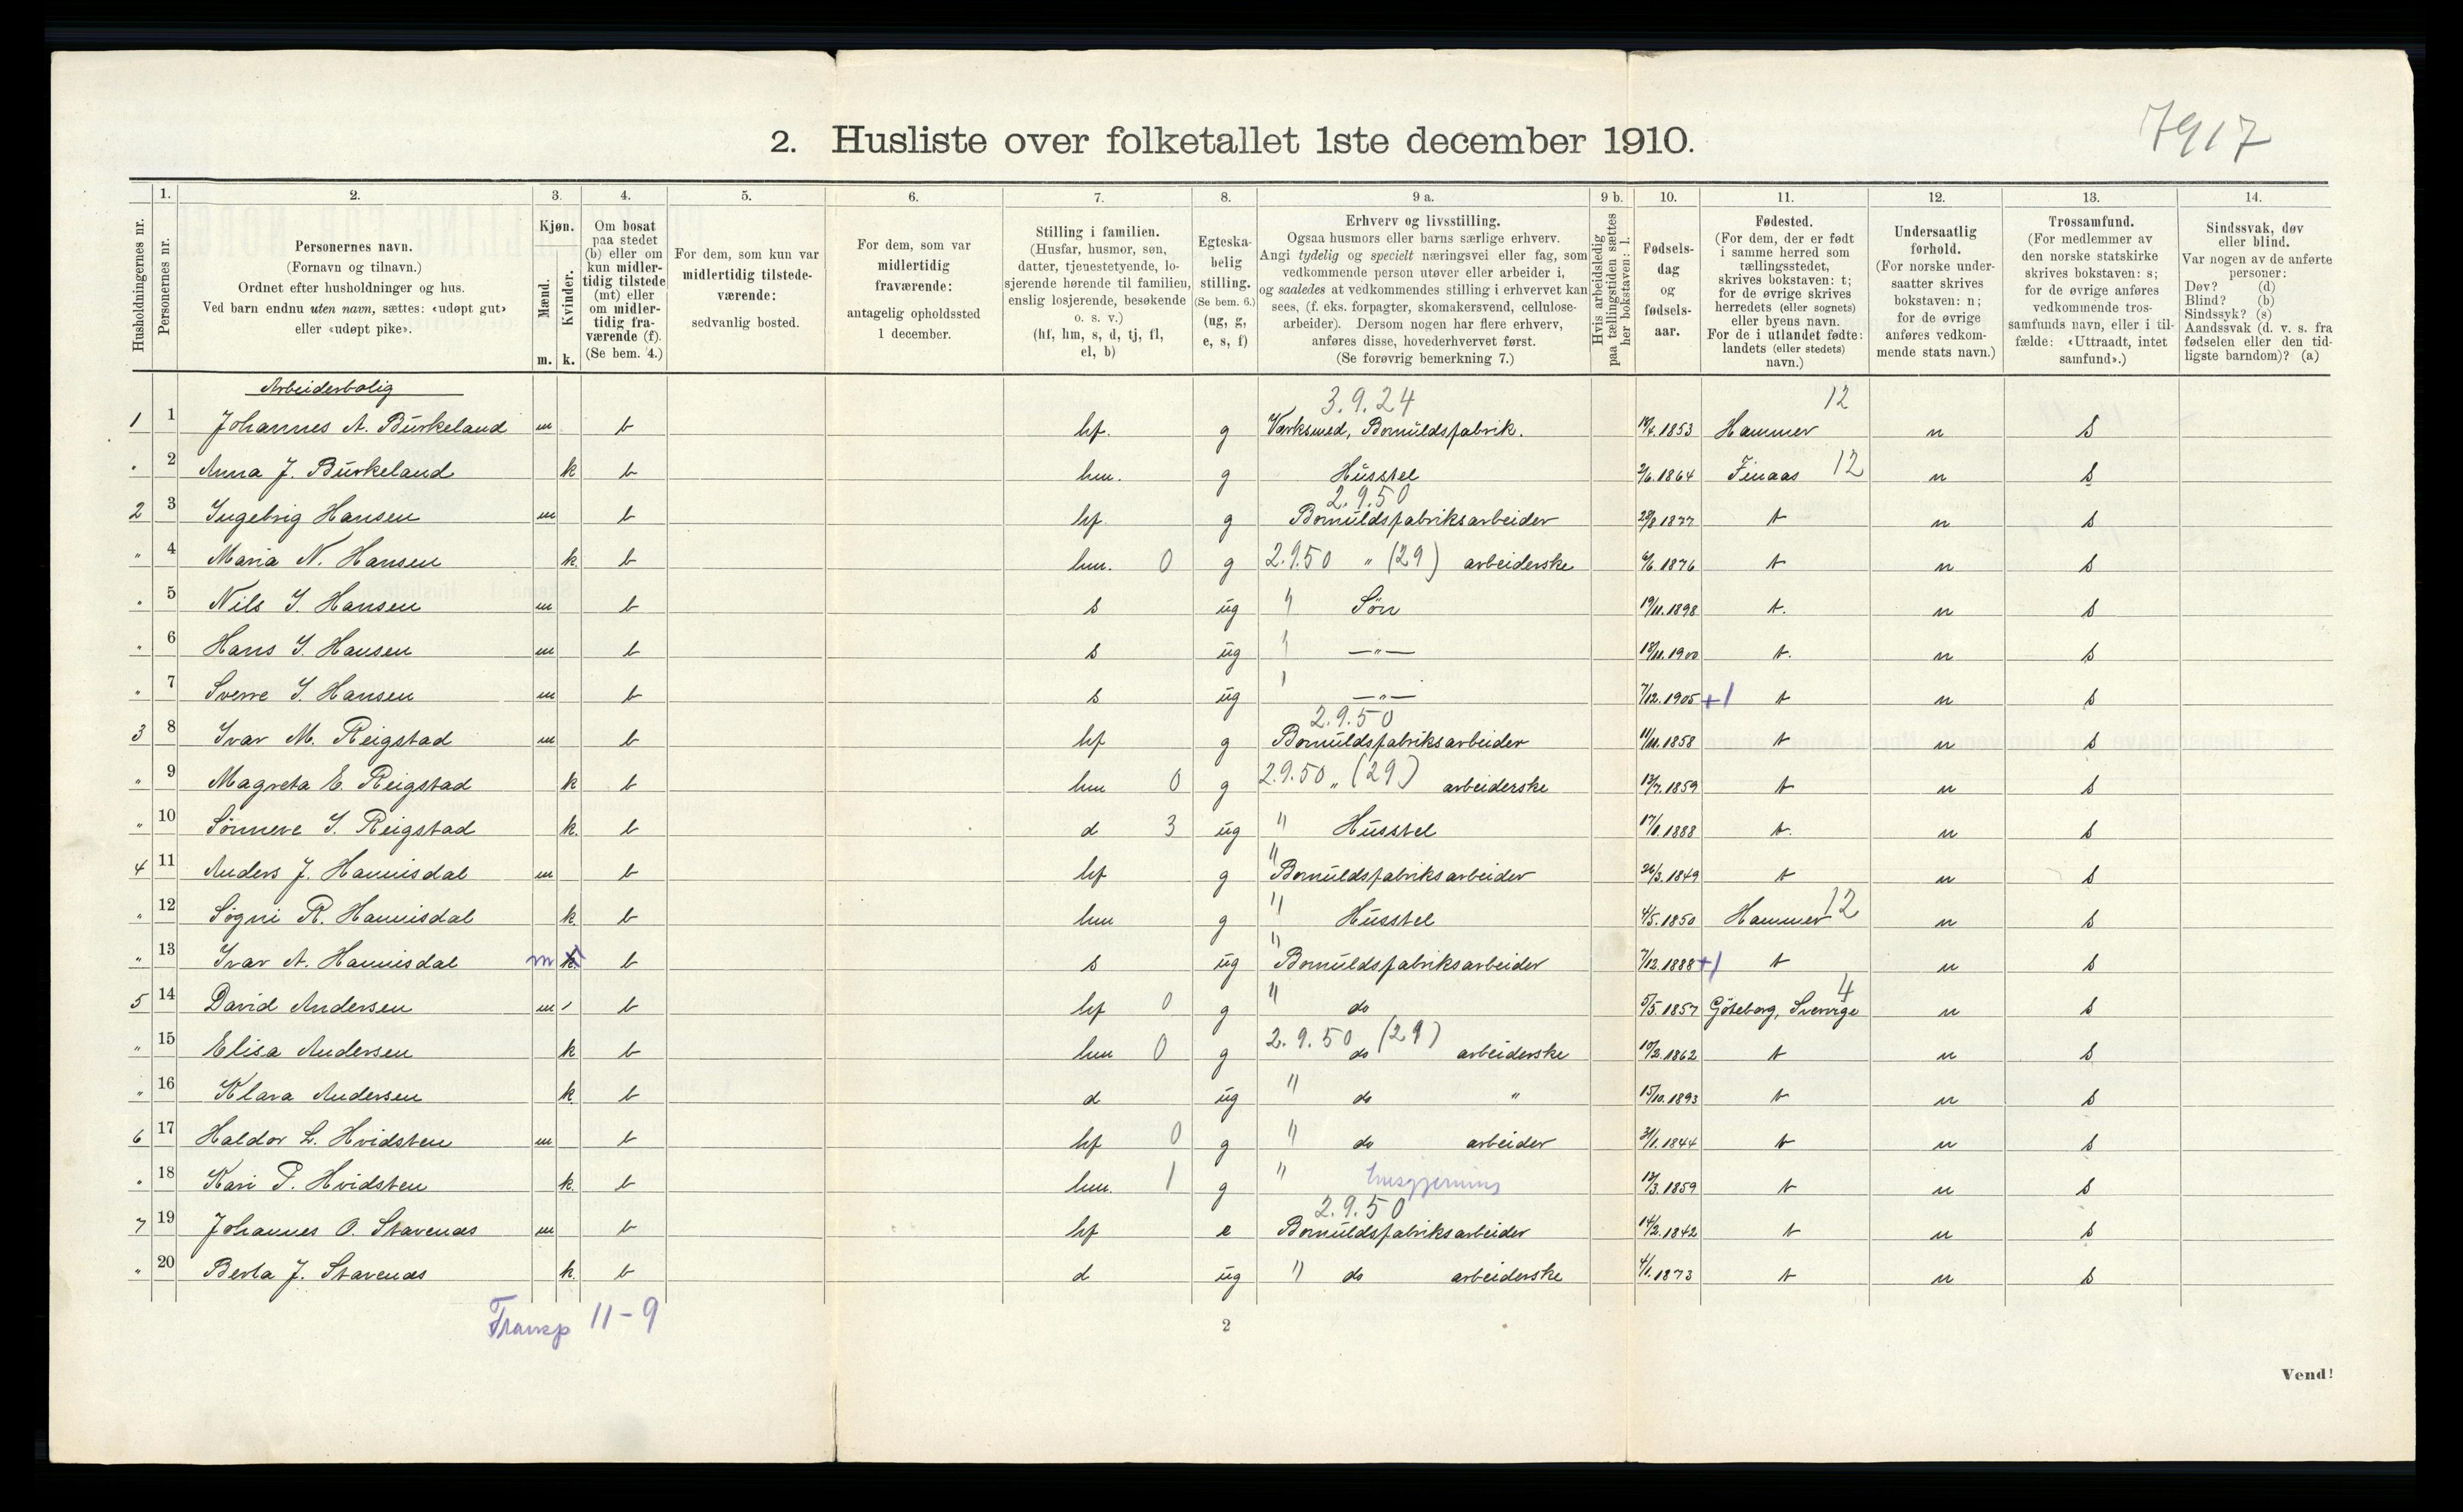 7917
2. Husliste over folketallet 1ste december 1910.
1. 2. 3. 4. 5. 6. 7. 8. 9 a. 9 b. 10. 11. 12. 13. 14.
Husholdningernes nr.
Personernes nr.
Personernes navn.
(Fornavn og tilnavn.)
Ordnet efter husholdninger og hus.
Ved barn endnu uten navn, sættes: «udøpt gut»
eller «udøpt pike».
Kjøn.
Mænd.
Kvinder.
m. k.
Om bosat
paa stedet
(b) eller om
kun midler-
tidig tilstede
(mt) eller
om midler-
tidig fra-
værende (f).
(Se bem. 4.)
For dem, som kun var
midlertidig tilstede-
værende:
sedvanlig bosted.
For dem, som var
midlertidig
fraværende:
antagelig opholdssted
1 december.
Stilling i familien.
(Husfar, husmor, søn,
datter, tjenestetyende, lo-
sjerende hørende til familien,
enslig losjerende, besøkende
o. s. v.)
(hf, hm, s, d, tj, fl,
el, b)
Egteska-
belig
stilling.
(Se bem. 6.)
(ug, g,
e, s, f)
Erhverv og livsstilling.
Ogsaa husmors eller barns særlige erhverv.
Angi tydelig og specielt næringsvei eller fag, som
vedkommende person utøver eller arbeider i,
og saaledes at vedkommendes stilling i erhvervet kan
sees, (f. eks. forpagter, skomakersvend, cellulose-
arbeider). Dersom nogen har flere erhverv,
anføres disse, hovederhvervet først.
(Se forøvrig bemerkning 7.)
Hvis arbeidsledig
paa tællingstiden sættes
her bokstaven: l.
Fødsels-
dag
og
fødsels-
aar.
Fødested.
(For dem, der er født
i samme herred som
tællingsstedet,
skrives bokstaven: t;
for de øvrige skrives
herredets (eller sognets)
eller byens navn.
For de i utlandet fødte:
landets (eller stedets)
navn.)
Undersaatlig
forhold.
(For norske under-
saatter skrives
bokstaven: n;
for de øvrige
anføres vedkom-
mende stats navn.)
Trossamfund.
(For medlemmer av
den norske statskirke
skrives bokstaven: s;
for de øvrige anføres
vedkommende tros-
samfunds navn, eller i til-
fælde: «Uttraadt, intet
samfund».)
Sindssvak, døv
eller blind.
Var nogen av de anførte
personer:
Døv? (d)
Blind? (b)
Sindssyk? (s)
Aandssvak (d. v. s. fra
fødselen eller den tid-
ligste barndom)? (a)
Arbeiderbolig
3.9.24 12
1 1 Johannes A. Burkeland m b hf. g Værksmed, Bomuldsfabrik. 1853 Hammer n s
" 2 Anna J. Burkeland k b hm. g Husstel 2/6.1864 Finaas 12 n s
2.9.50
2 3 Ingebrig Hansen m b hf. g Bomuldsfabriksarbeider 28/8 1877 t n s
" 4 Maria N. Hansen k b hm. 0 g 2.9.50 " (29) arbeiderske 6/6.1876 t n s
" 5 Nils I. Hansen m b s ug " Søn 19/11.1898 t. n s
" 6 Hans I. Hansen m b s ug " —"— 18/11.1900 t. n s
" 7 Sverre I. Hansen m b s ug " —"— 7/12.1905 +1 t n s
2.9.50
3 8 Ivar M. Reigstad m b hf g Bomuldsfabriksarbeider 11/11.1858 t n s
" 9 Magreta E. Reigstad k b hm 0 g 2.9.50 " (29) arbeiderske 13/7.1859 t n s
" 10 Sønneve I. Reigstad k. b d 3 ug " Husstel 17/8.1888 t. n s
4 11 Anders J. Hannisdal m b hf g " Bomuldsfabriksarbeider 26/3.1849 t n s
" 12 Søgni R. Hannisdal k b hm g " Husstel 4/5.1850 Hammer 12 n s
" 13 Ivar A. Hannisdal m k b s ug " Bomuldsfabriksarbeider 7/12.1888 +1 t n s
5 14 David Andersen m b hf 0 g " do 5/5.1857 Göteborg, Sverrige 4 n s
" 15 Elisa Andersen k b hm 0 g 2.9.50 do (29) arbeiderske 10/2.1862 t n s
" 16 Klara Andersen k b d ug " do " 15/10.1893 t n s
6 17 Haldor L. Hvidsten m b hf 0 g " do arbeider 31/1.1844 t n s
" 18 Kari P. Hvidsten k. b hm. 1 g " husgjerning 13/3.1859 t n s
2.9.50
7 19 Johannes O. Stavenæs m b hf e Bomuldsfabriksarbeider 14/2.1842 t n s
" 20 Berta J. Stavenæs k. b d ug " do arbeiderske 4/1.1873 t n s
Transp 11-9
2
Vend!